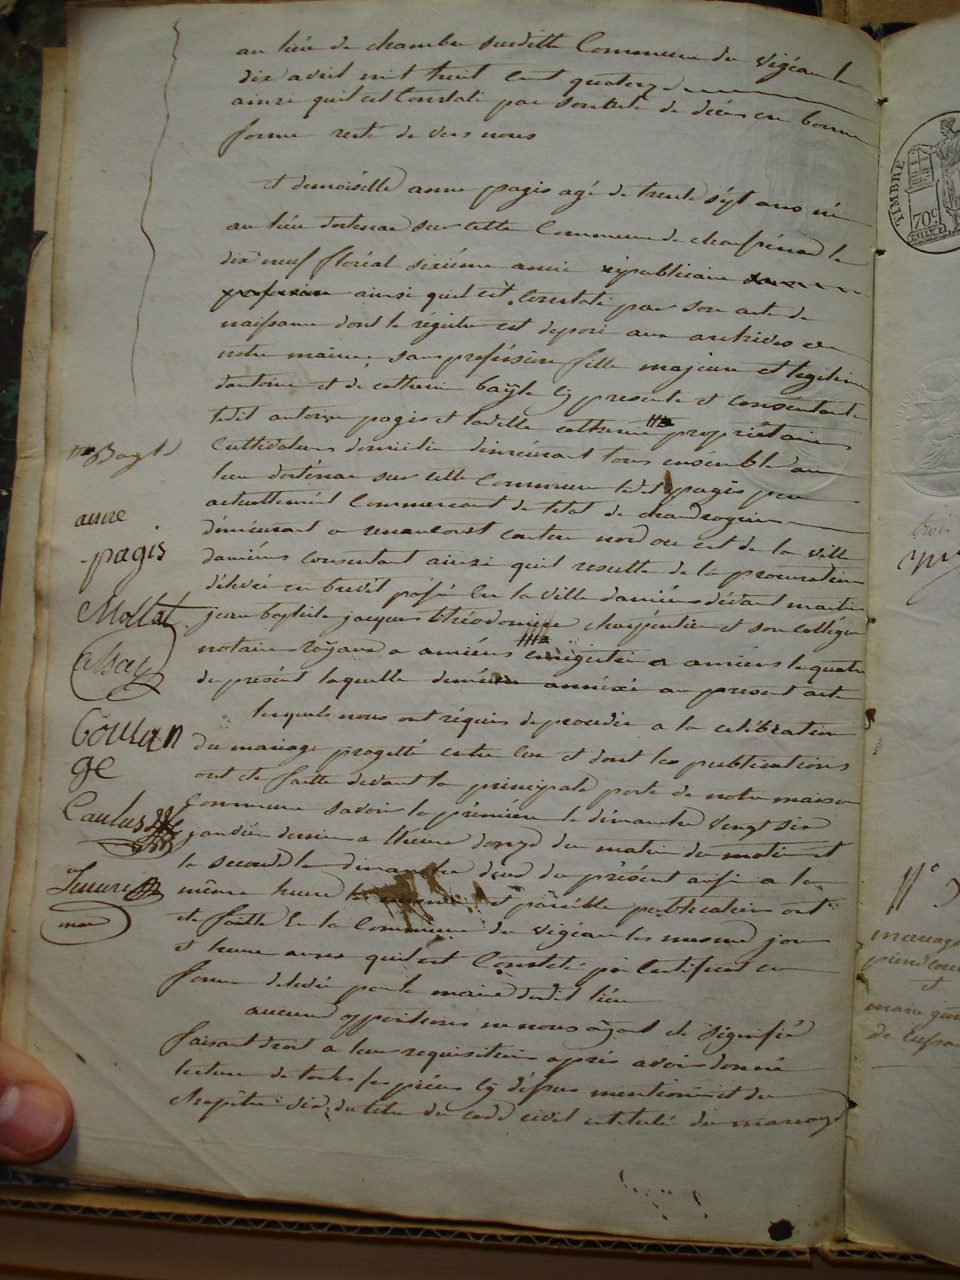 au lieu de chambre susditte Commune du vigéan le
dix avril mil huit cent quatorze
ainsi quil est Constaté par son acte de décés en bonne
forme resté de vers nous
et demoiselle anne pagis agé de trente sept ans né
au lieu dostenac sur cette Commune de le
dix neuf floréal sixieme année républicaine
profession ainsi quil est Constaté par son acte de
naissance dont le régistre est deposé aux archives de
notre mairie sans proféssion fille majeure et legitime
dantoine et de catherine bayle cy presents et consentants
ledit antoine pagis et laditte catherine propriétaires
Cultivateurs demeurant tous ensemble au
lieu dostenac sur cette Commune ledit pagis pere
actuellement Commercant de létat de chaudronnier
demeurant a nord ou est de la ville
damiens consentant ainsi quil resulte de la procuration
délivrée en brevét passé en la ville damiens devant martin
jean baptiste jacques théodomire charpentier et son collégue
notaires royaux a amiens enrégistré a amiens le quatre
du présent laquelle demeure annéxée au présent acte
lesquels nous ont réquis de procéder a la célébration
du mariage projetté entre eux et dont les publications
ont ete faitte devant la principale porte de notre maison
Commune savoir la prémiere le dimanche vingt six
janvier dernier a lheure donze du matin du matin et
la seconde le dimanche deux du présent aussi a la
même heure et paréille publications ont
ete faitte en la Commune du vigéan les mesme jour
et heure ainsi quil est Constaté par Certificat en
forme delivré par le maire dudit lieu
aucune oppositions ne nous ayant eté signifiée
faisant droit a leur requisition aprés avoir donné
lecture de toutes les piéces cy dessus mentionnés et du
chapitre six du titre du code civil intitulé du mariage
Bayle
anne
pagis
Mollat
Coulan
ge
Caulus
maire
TIMBRE
70c
trois
N°
mariage
de